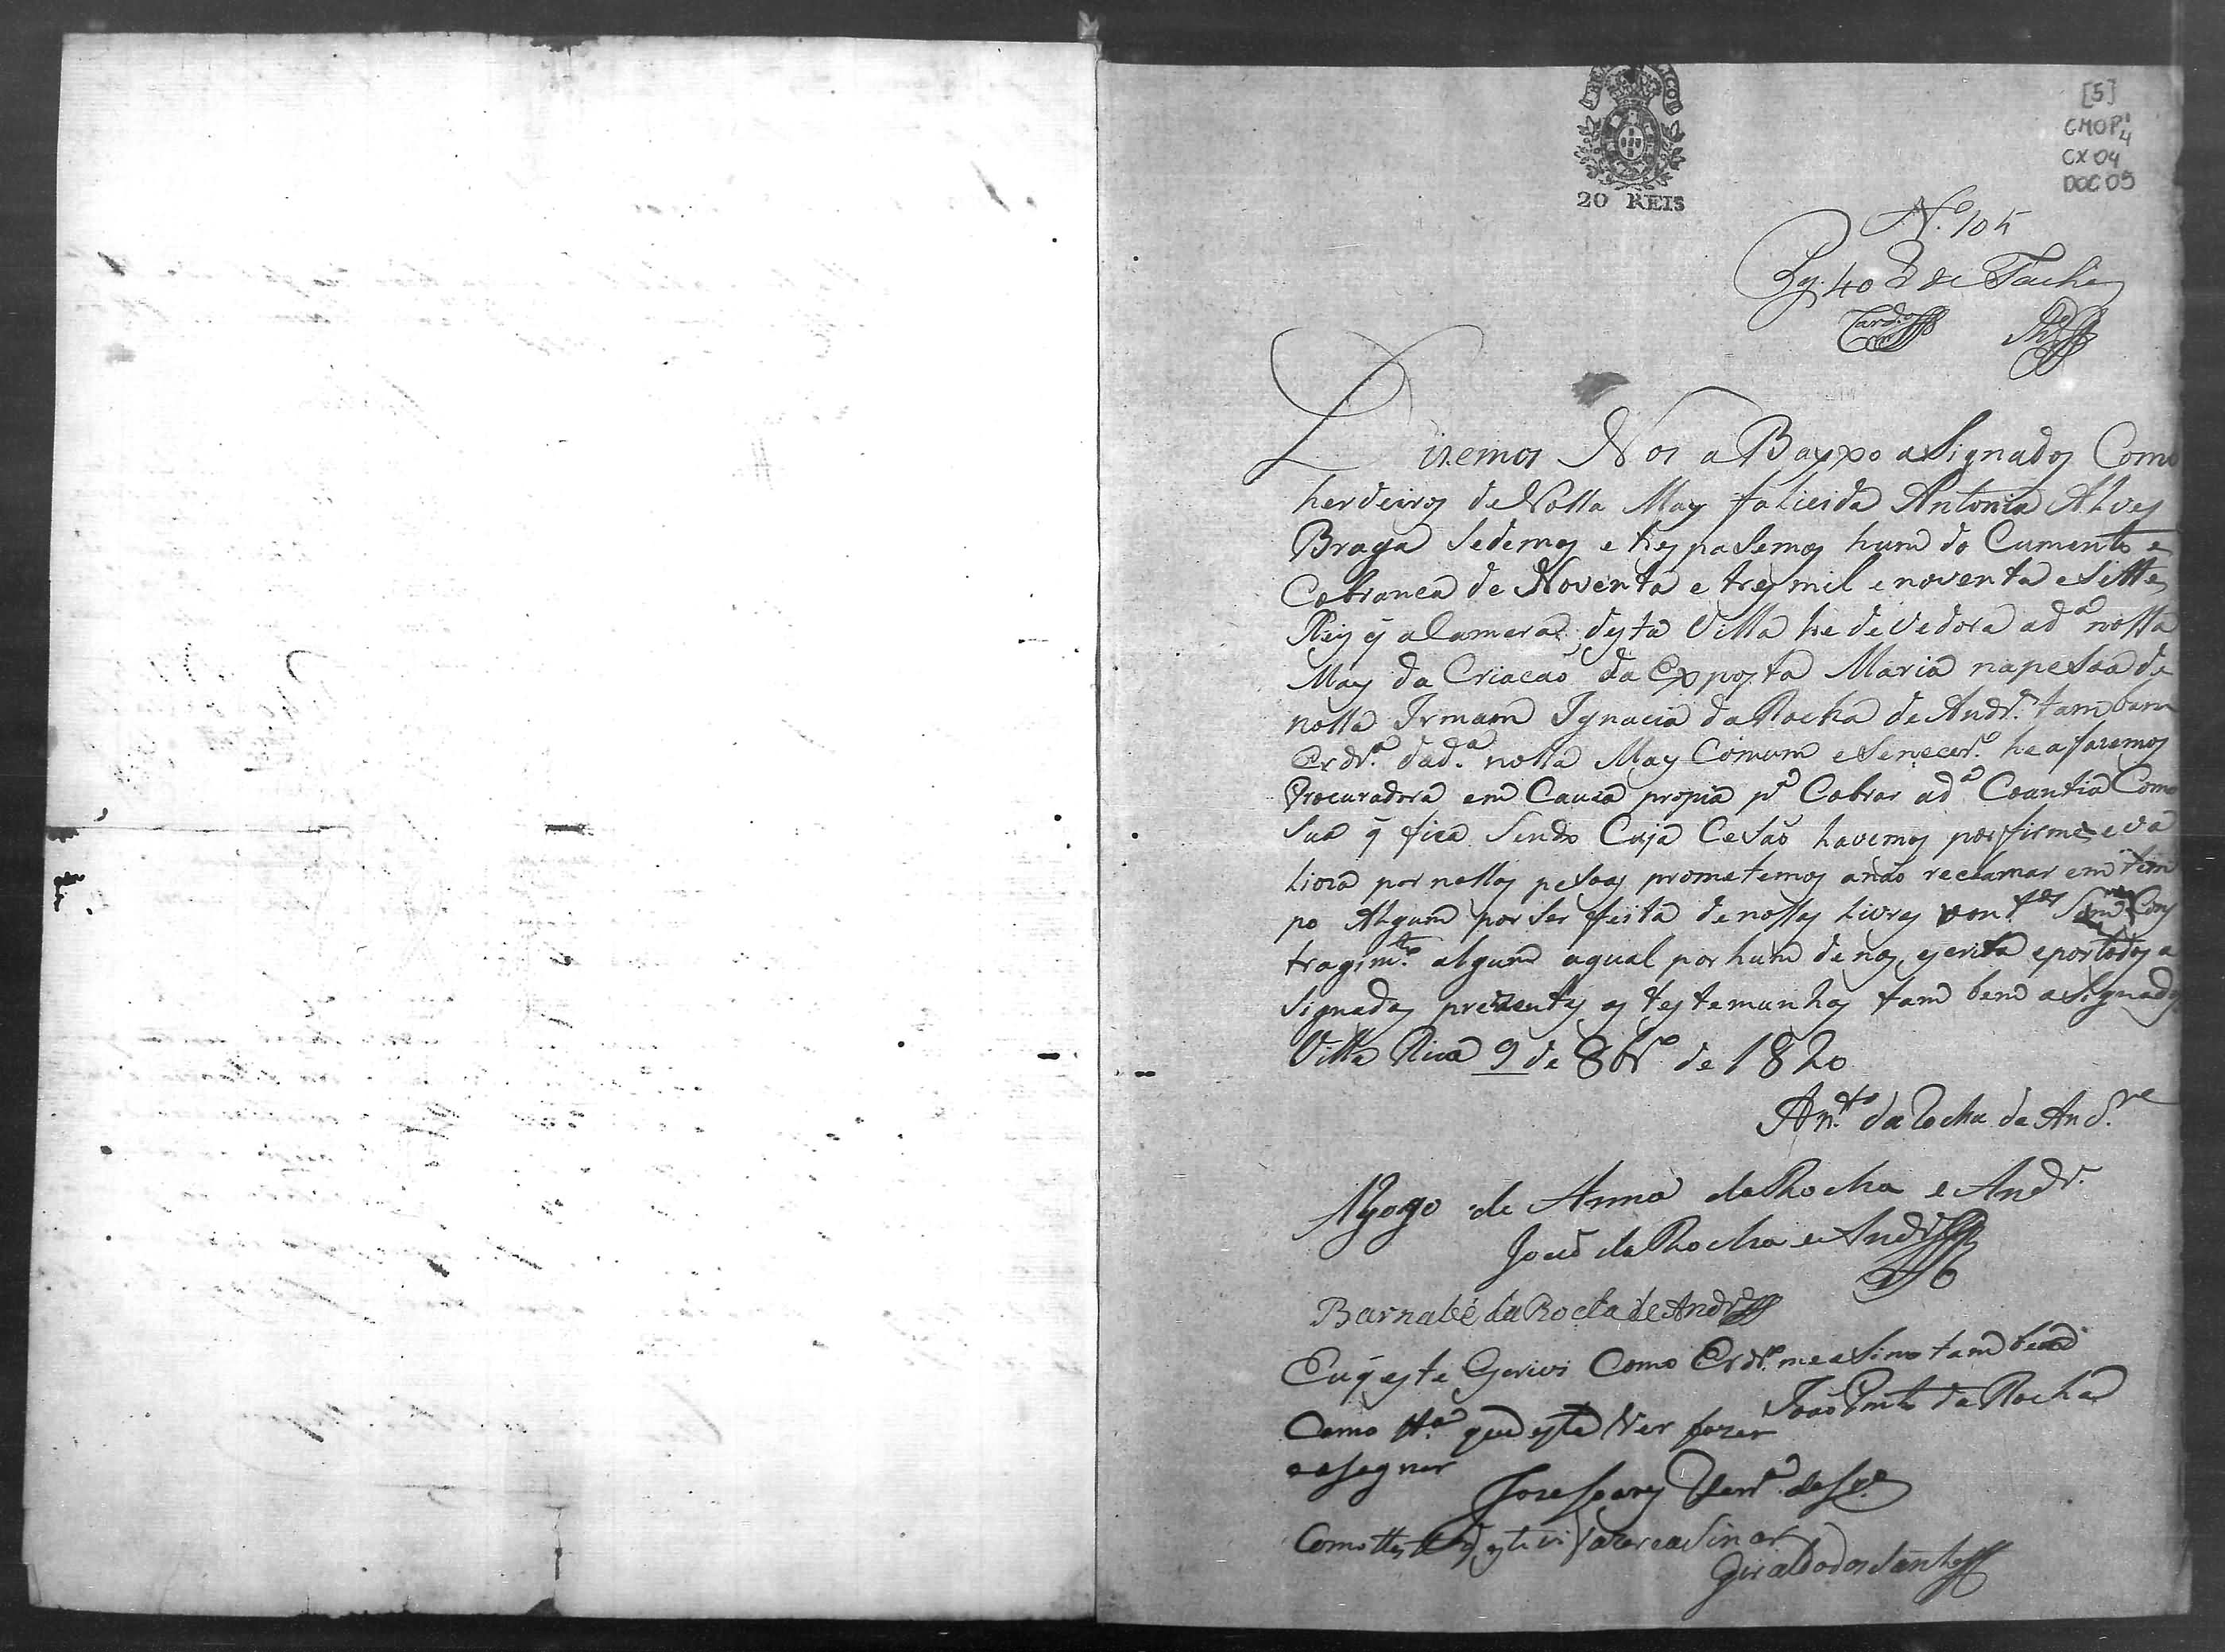 20 REIS
[5]
CMOP
CX 04
DOC 05
N.º 105
Pg. 40 de
Dizemos Nos a Bayxo aSignados Como
herdeiros de Nossa May falicida Antonia Alves
Braga Sedemos e trespasemos hum do Cumento e
Cobranca de Noventa e tres mil e noventa e sitte
Reis q̃ a Camera desta Villa he devedora a d.ª nossa
May da Criacaõ da Exposta Maria na pesoa de
nossa Irmam Ignacia da Rocha de Andr.e tam bem
Erdr.ª da d.ª nossa May Comum e Senecesr.º he a faremos
Procuradora em Cauza propia p.ª Cobrar a d.ª Coantia Como
Sua q̃ fica Sendo Cuja Cesaõ havemos por firme e va
lioza por nossas pesoas prometemos anaõ reclamar em tem
po Algum por Ser feita de nossas livres vont.es Sem Cons
tragim.to algum a qual por hum de nos escrita e por todos a
Signada prezentes as testemunhas tam bem aSignadas
Villa Rica 9 de 8br.º de 1820
An.to da Rocha de And.re
A Rogo de Anna da Rocha e Andr.e
José da Rocha e Andr.e
Barnabé da Rocha de Andr.e
Eu q̃ este Escrivi Como Erdr.º me aSino tam bem
João Pinto da Rocha
Como tt.ª que este Ver fazer
e asegnar
Joze Soares
Como test.ª q̃ este vi fazer e aSinar
Giraldo dos Santos